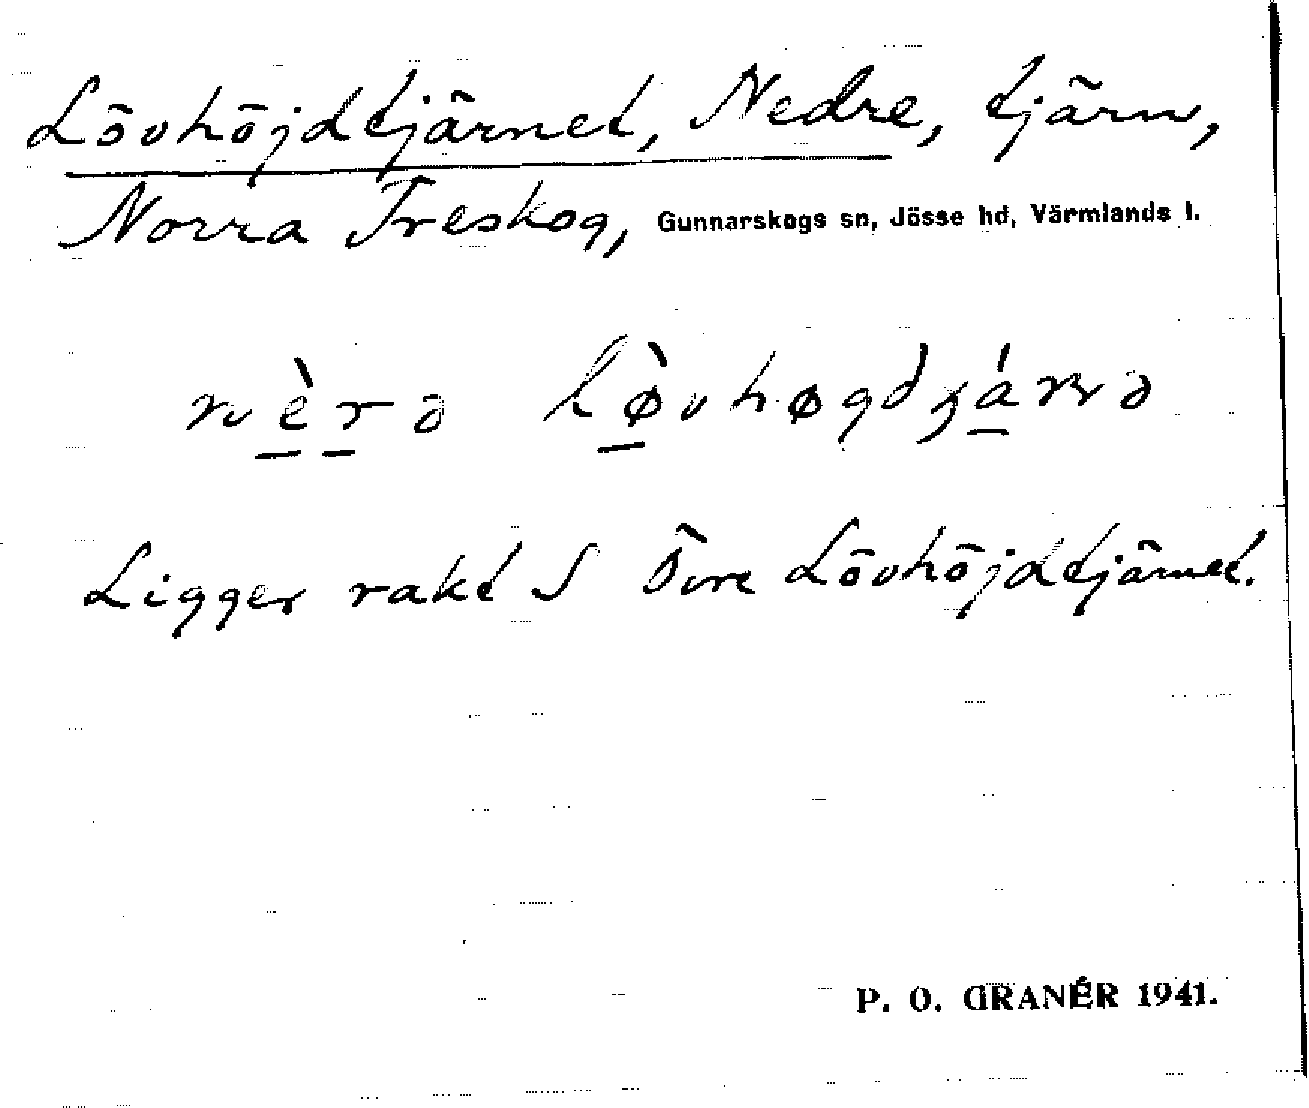 Lövhöjdtjärnet, Nedre, tjärn,
Norra Treskog, Gunnarskogs sn, Jösse hd, Värmlands l.
nèrə løvhøgdʒánə
Ligger rakt S Övre Lövhöjdtjärnet.
P. O. GRANÉR 1941.